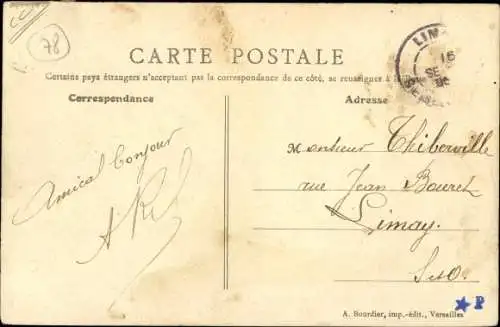 78
CARTE POSTALE
Certains pays étrangers n'acceptant pas la correspondance de ce côté, se renseigner à la
Correspondance
Adresse
LIM
15
SE
Amical bonjour
Monsieur Thiberville
rue Jean Bouret
Limay.
S&O.
P
A. Bourdier, imp.-édit., Versailles